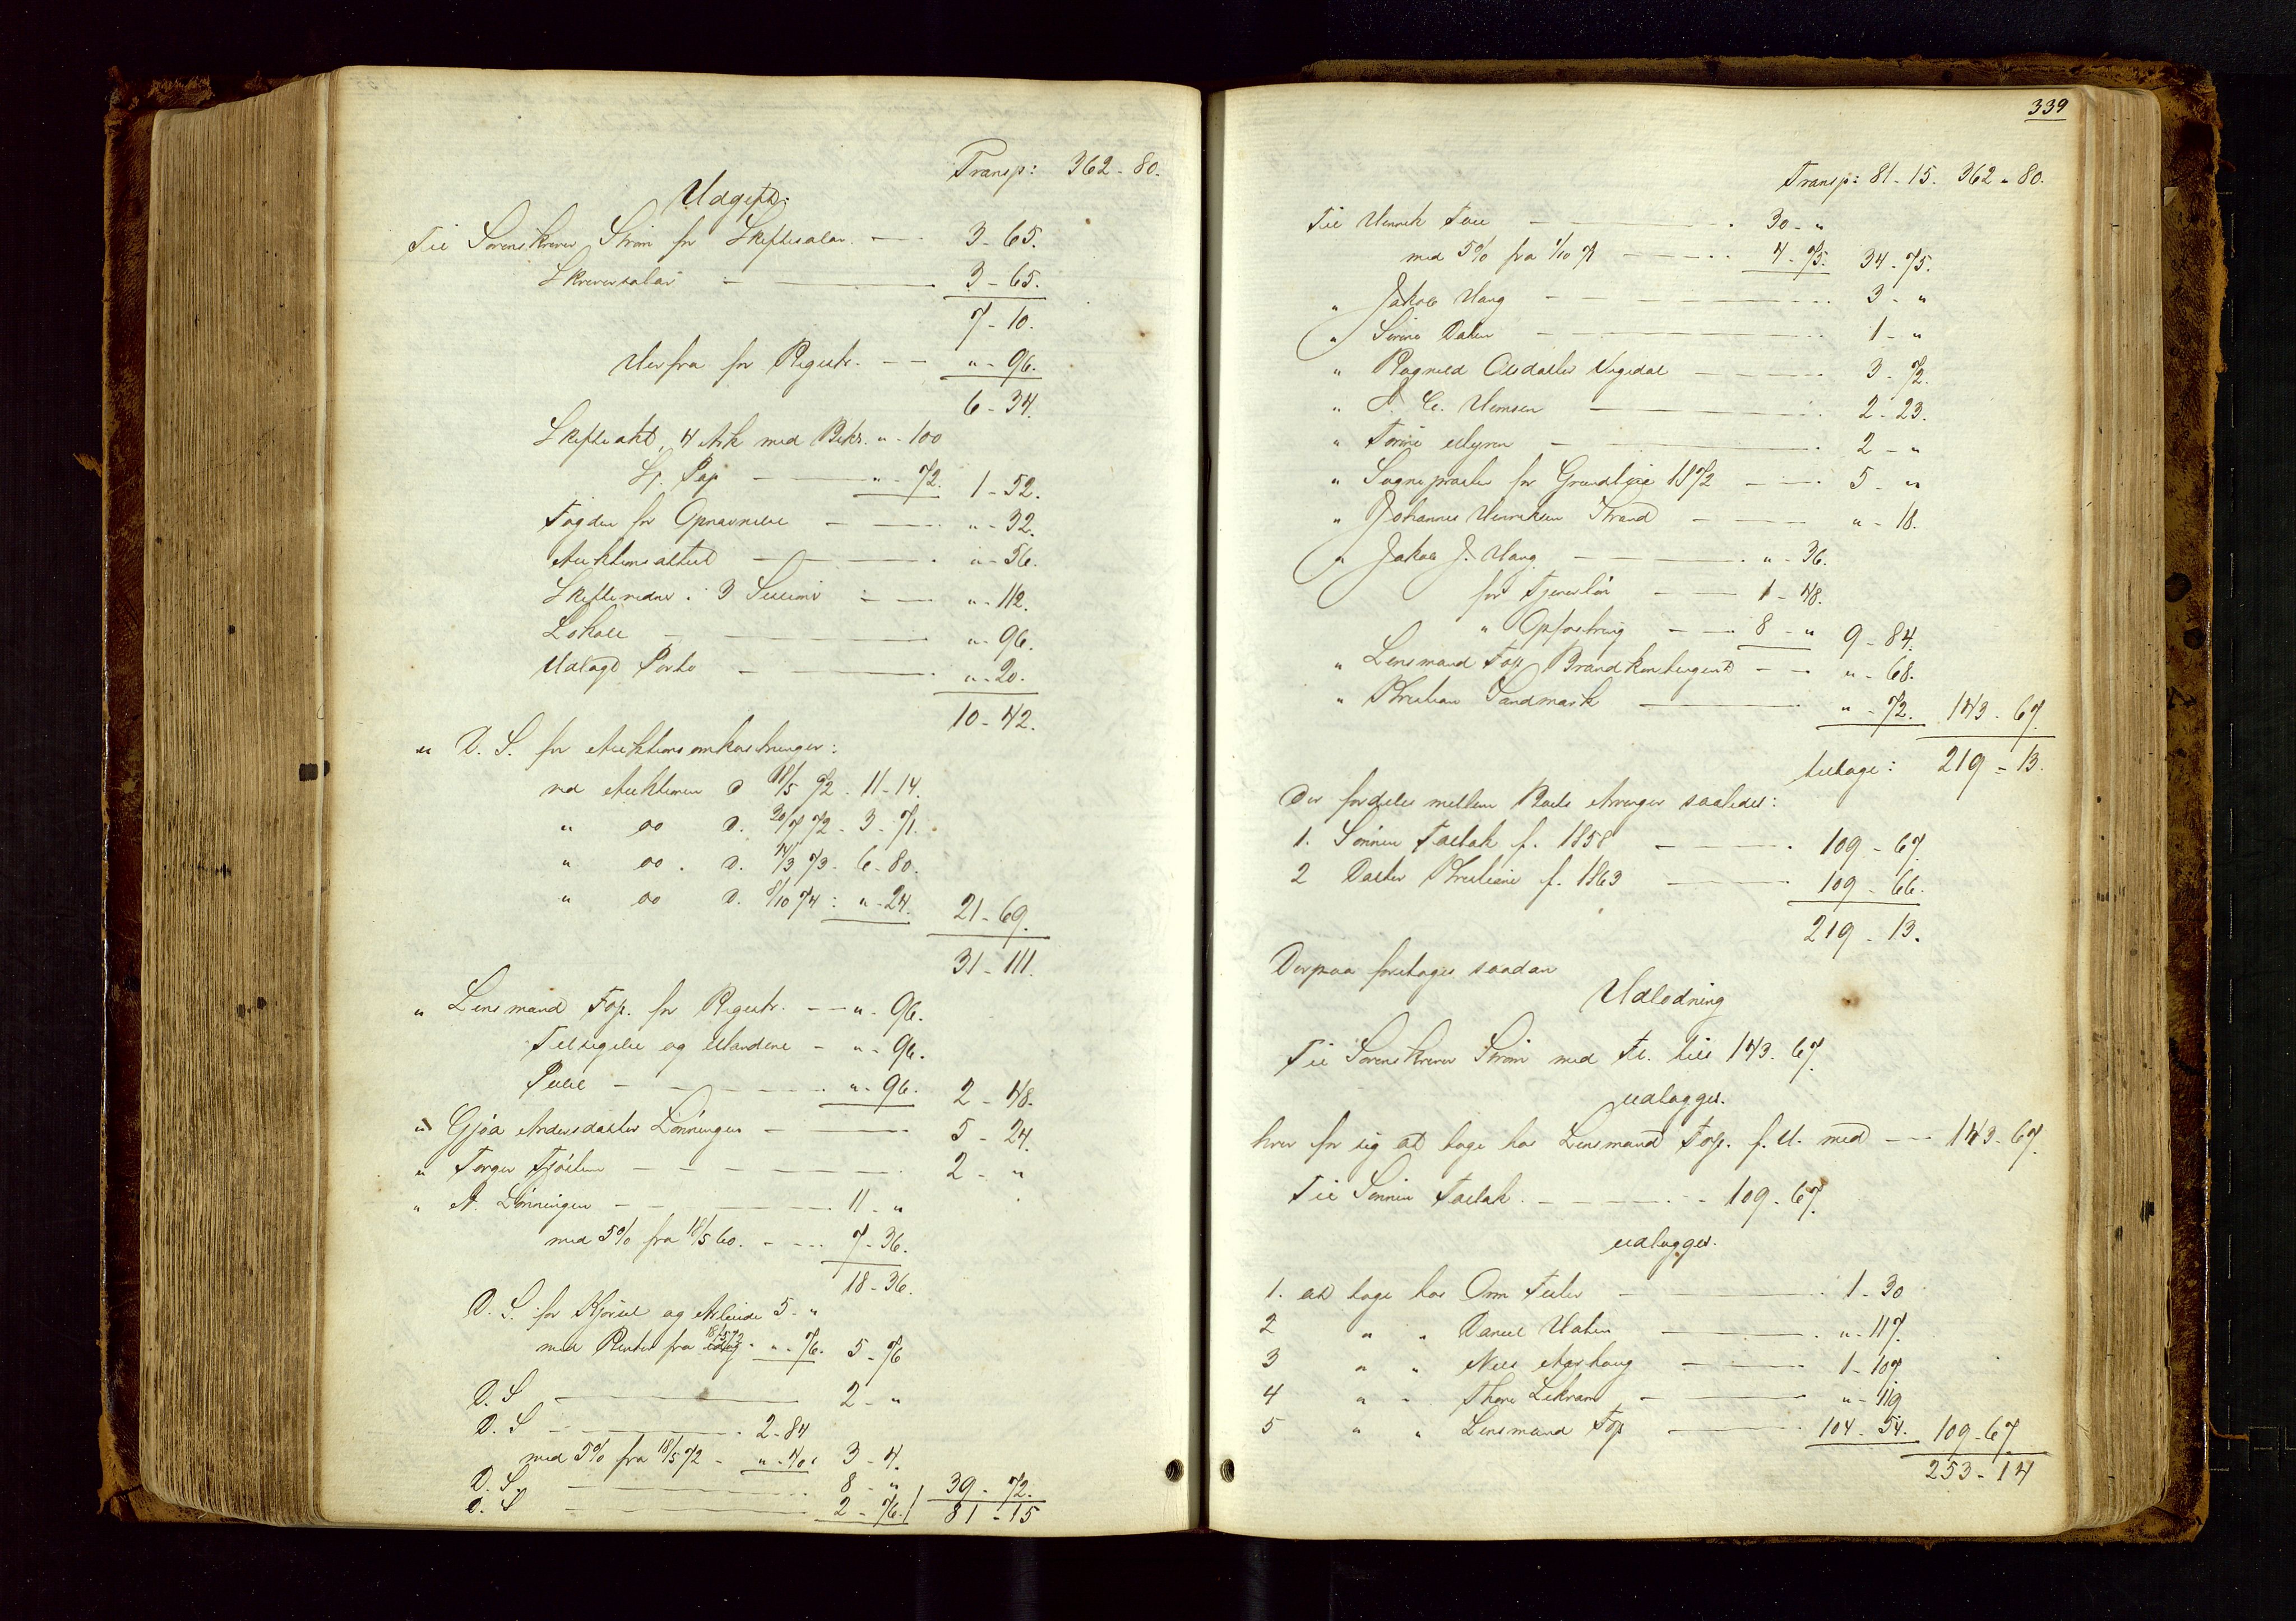 Transp: 362 - 80.
Udgift:
Til Sorenskriver Strøm for Skiftesalær — 3 - 65.
Skriversalær — 3 - 65.
7 - 10.
Herfra for Registr. — " - 96.
6 - 34.
Skifteakt, 4 Ark med Bekr. " - 100
St. Pap — " - 72. 1 - 52.
Fogden for Opnævnelse — " - 32.
Auktionsattest — " - 56.
Skiftevidner i 3 Sessioner — " - 112.
Lokale — " - 96.
Udlagt Porto — " - 20.
10 - 42.
" D. S. for Auktionsomkostninger:
ved Auktionen d 18/5 72 . 11 - 14.
" do d. 20/7 72 - 3 - 71.
" do . d. 14/3 73 - 6 - 80.
" do d. 8/10 74 : " - 24. 21 - 69.
31 - 111.
" Lensmand Top. for Registr. — " - 96.
Tilsigelse og Mændene — " - 96.
— " - 96. 2 - 48.
" Gjoa Andersdatter Lønningen — 5 - 24.
" Torger Tjøstem — 2 - "
" A. Lønningen — 11 - "
med 5% fra 18/5 60. — 7 - 36.
18 - 36.
D. S. for Kjørsel og Arbeide 5 - "
med Renter fra 18/5 72 " - 76. 5 - 76
D. S — 2 - "
D. S — 2 - 84
med 5% fra 18/5 72 - " - 40. 3 - 4.
D. S. — 8 - " 39 - 72.
D. S — 2 - 76. 81 - 15
339
Transp: 81 - 15. 362 - 80.
Til Henrik — 30 - "
med 5% fra 1/10 71 — 4 - 75. 34 - 75.
" Jakob Haug — 3 - "
" Sørine Dalen — 1 - "
" Ragnild Olsdatter — 3 - 72.
" Hemsen — 2 - 23.
" Torine Myren — 2 - "
" Sognepresten for Grundleie 1872 — 5 - "
" Johannes Henriksen Strand — " - 18.
" Jakob J. Haug — " - 36.
for Tjenerløn — 1 - 48.
" Opfostring — 8 - " 9 - 84.
" Lensmand Top Brandkontingent — " - 68.
" Kristian Sandmark — " - 72. 143 - 67.
tilbage: 219 - 13.
Der fordeles mellem Boets Arvinger saaledes:
1. Sønnen Tallak f. 1858 — 109 - 67.
2 Datter Kristiane f. 1863 — 109 - 66.
219 - 13.
Derpaa foretages saadan
Udlodning
Til Sorenskriver Strøm med Fl. tils 143 - 67.
udlægges.
hver for sig at tage hos Lensmand Top. f. U. med — 143 - 67.
Til Sønnen Tallak — 109 - 67.
udlægges.
1. at tage hos Orm — 1 - 30
2 " " Daniel — " - 117.
3 " " Niels Aashaug — 1 - 107.
4 " " — " - 119
5 " " Lensmand Top — 104 - 54. 109 - 67.
253 - 14